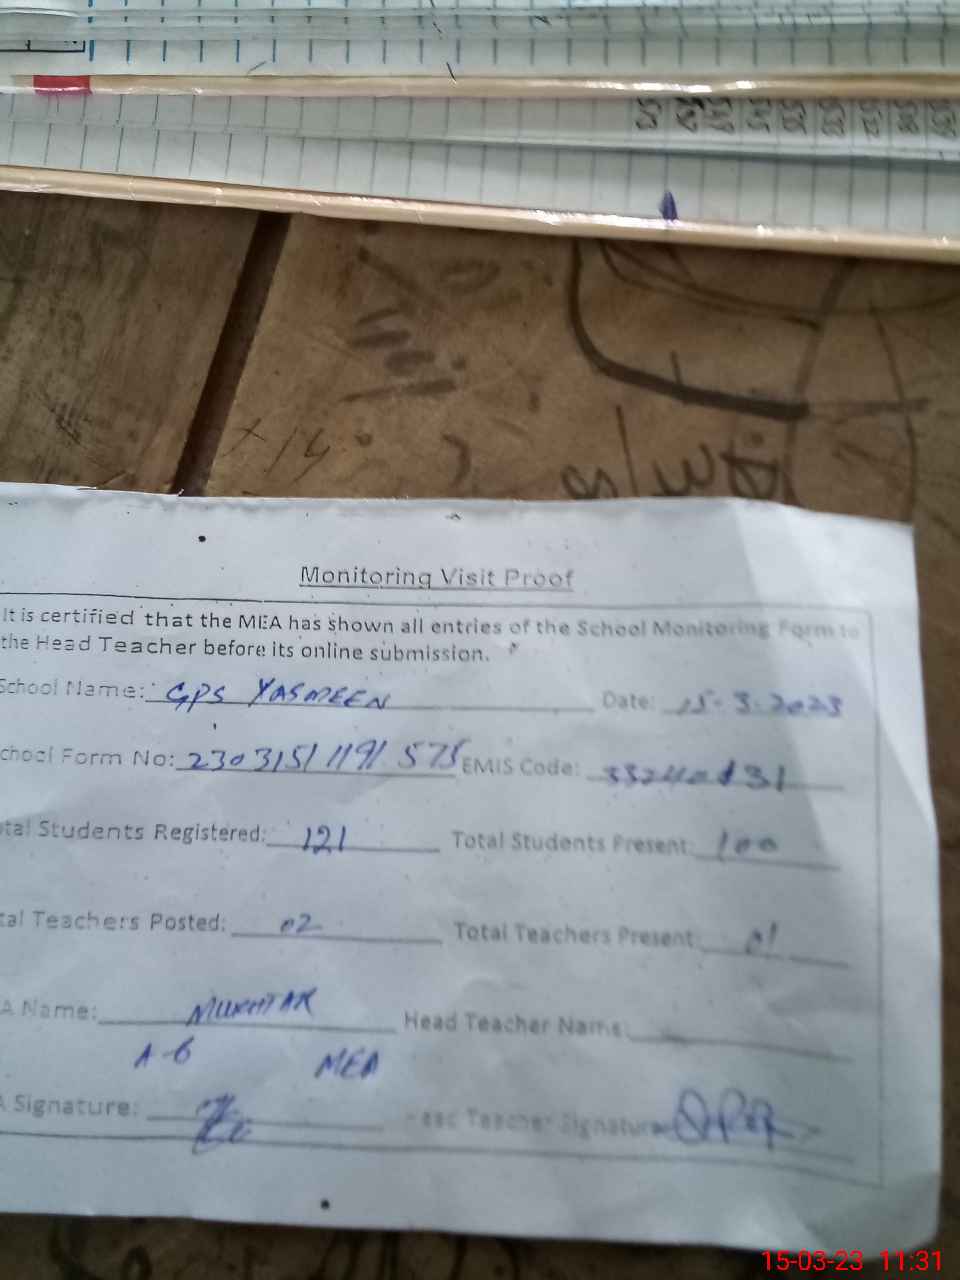 Monitoring Visit Proof
It is certified that the MEA has shown all entries of the School Monitoring Form to
the Head Teacher before its online submission.
School Name: GPS YASMEEN Date: 15-3-2023
chool Form No: 2303151 1191 575 EMIS Code:
tal Students Registered: 121 Total Students Present: 100
tal Teachers Posted: 02 Total Teachers Present: 01
A Name: MUKHTAR Head Teacher Name:
A-6 MEA
A Signature: Head Teacher Signature
15-03-23 11:31